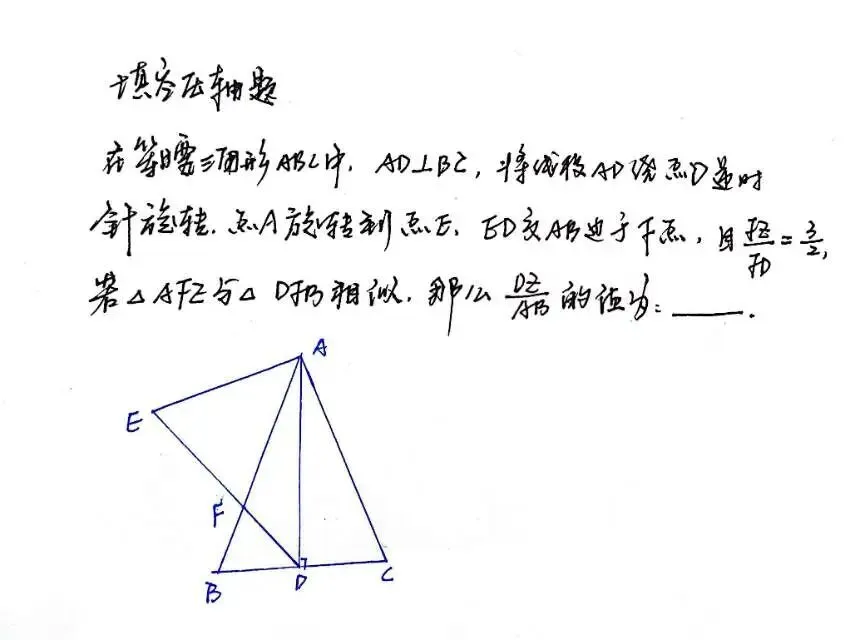 填空压轴题
在等腰三角形ABC中，AD⊥BC，将线段AD绕点D逆时
针旋转，点A旋转到点E，ED交AB边于F点，且FE/FD=3/2，
若△AFE与△DFB相似，那么DE/AB的值为：____．
A
E
F
B
D
C